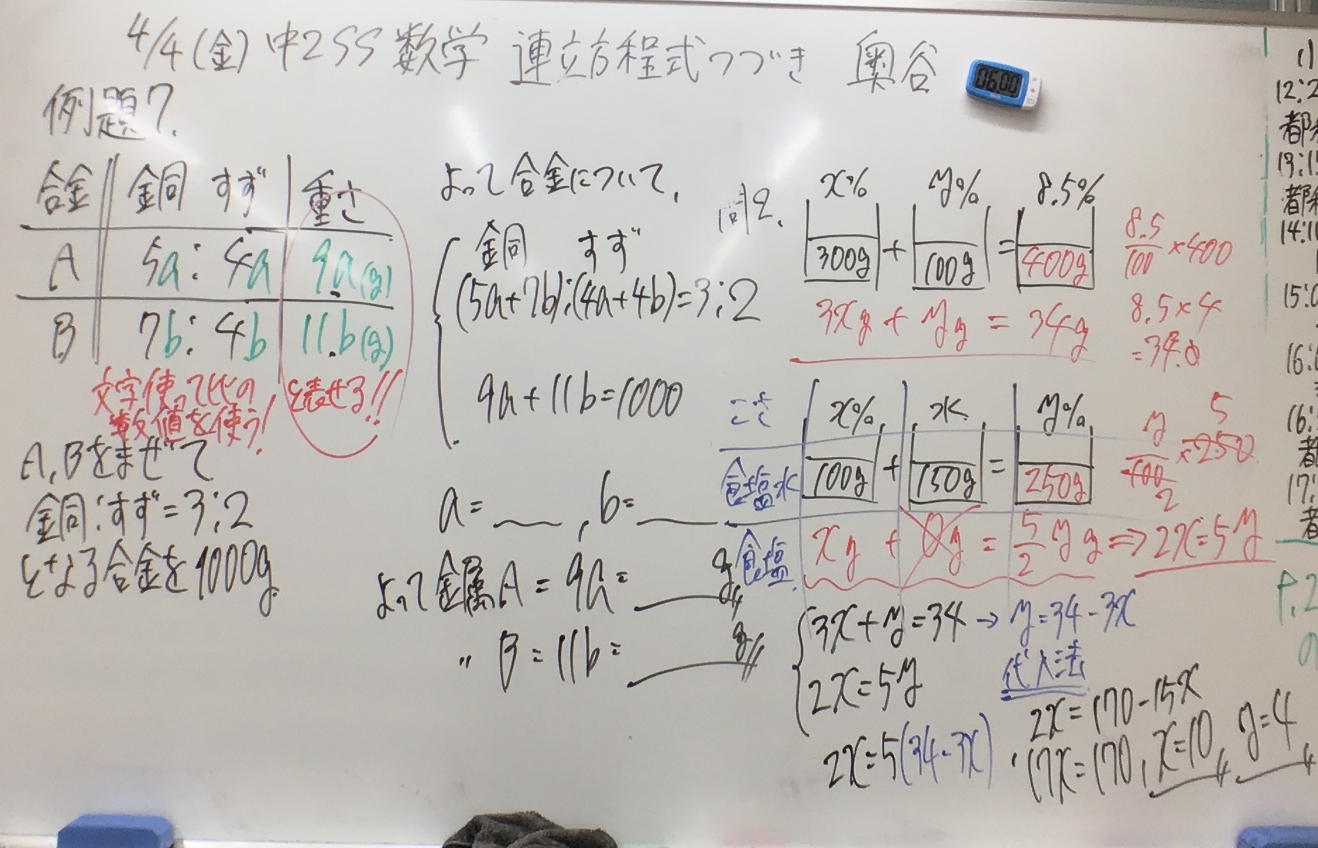 4/4(金)中2SS 数学 連立方程式つづき 奥谷
0600
例題7.
合金 銅 すず 重さ
A 5a:4a 9a(g)
B 7b:4b 11b(g)
文字使って比の
数値を使う!
と表せる!!
A,Bをまぜて
銅:すず=3:2
となる合金を1000g
よって合金について、
銅 すず
(5a+7b):(4a+4b)=3:2
9a+11b=1000
a= ,b=
よって金属A=9a= g
〃 B=11b= g
問2.
x% y% 8.5%
300g + 100g = 400g
8.5/100×400
3xg + yg = 34g
8.5×4
=34.0
こさ x% 水 y%
食塩水 100g + 150g = 250g
y/100×250
5
2
食塩 xg + 0g = 5/2yg ⇒ 2x=5y
3x+y=34→y=34-3x
2x=5y
代入法
2x=5(34-3x)
2x=170-15x
17x=170, x=10, y=4
12:2
都
13:15
都
14:1
15:0
16:
16:
都
17:
者
P.2
の